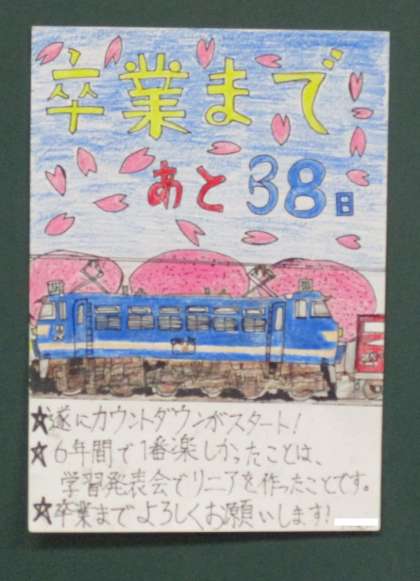 卒業まで
あと38日
★遂にカウントダウンがスタート!
★6年間で1番楽しかったことは、
学習発表会でリニアを作ったことです。
★卒業までよろしくお願いします!